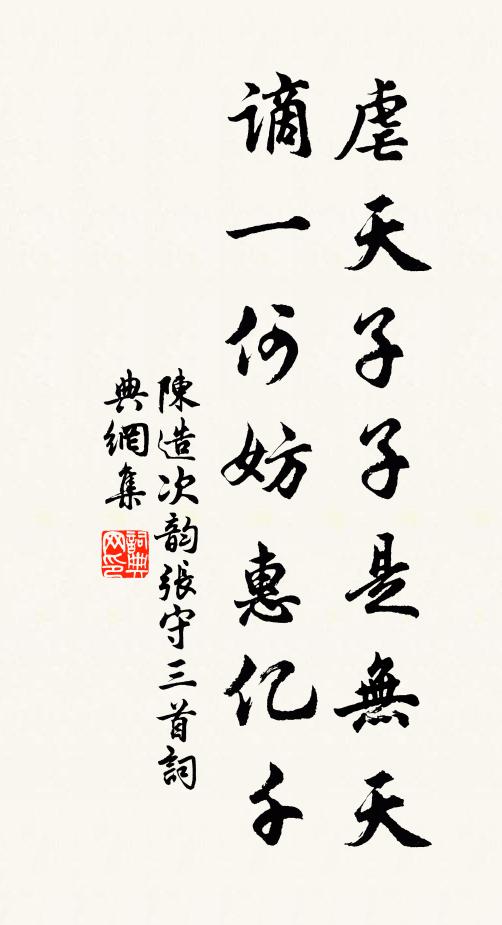 虐天子子是無天
謫一何妨惠亿千
陳造次韵張守三首詞
典網集
詞典网印